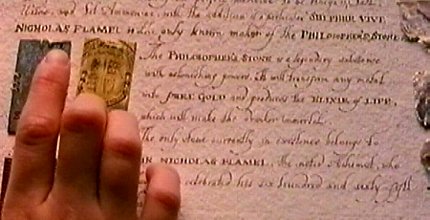 and Sal Ammoniac, with the addition of a particular SULPHUR VIVE
NICHOLAS FLAMEL is the only known maker of the PHILOSOPHER'S STONE
The PHILOSOPHER'S STONE is a legendary substance
with astonishing powers. It will transform any metal
into PURE GOLD and produces the ELIXIR of LIFE,
which will make the drinker immortal.
The only Stone currently in existence belongs to
NICHOLAS FLAMEL, the noted Alchemist, who
celebrated his six hundred and sixty fifth